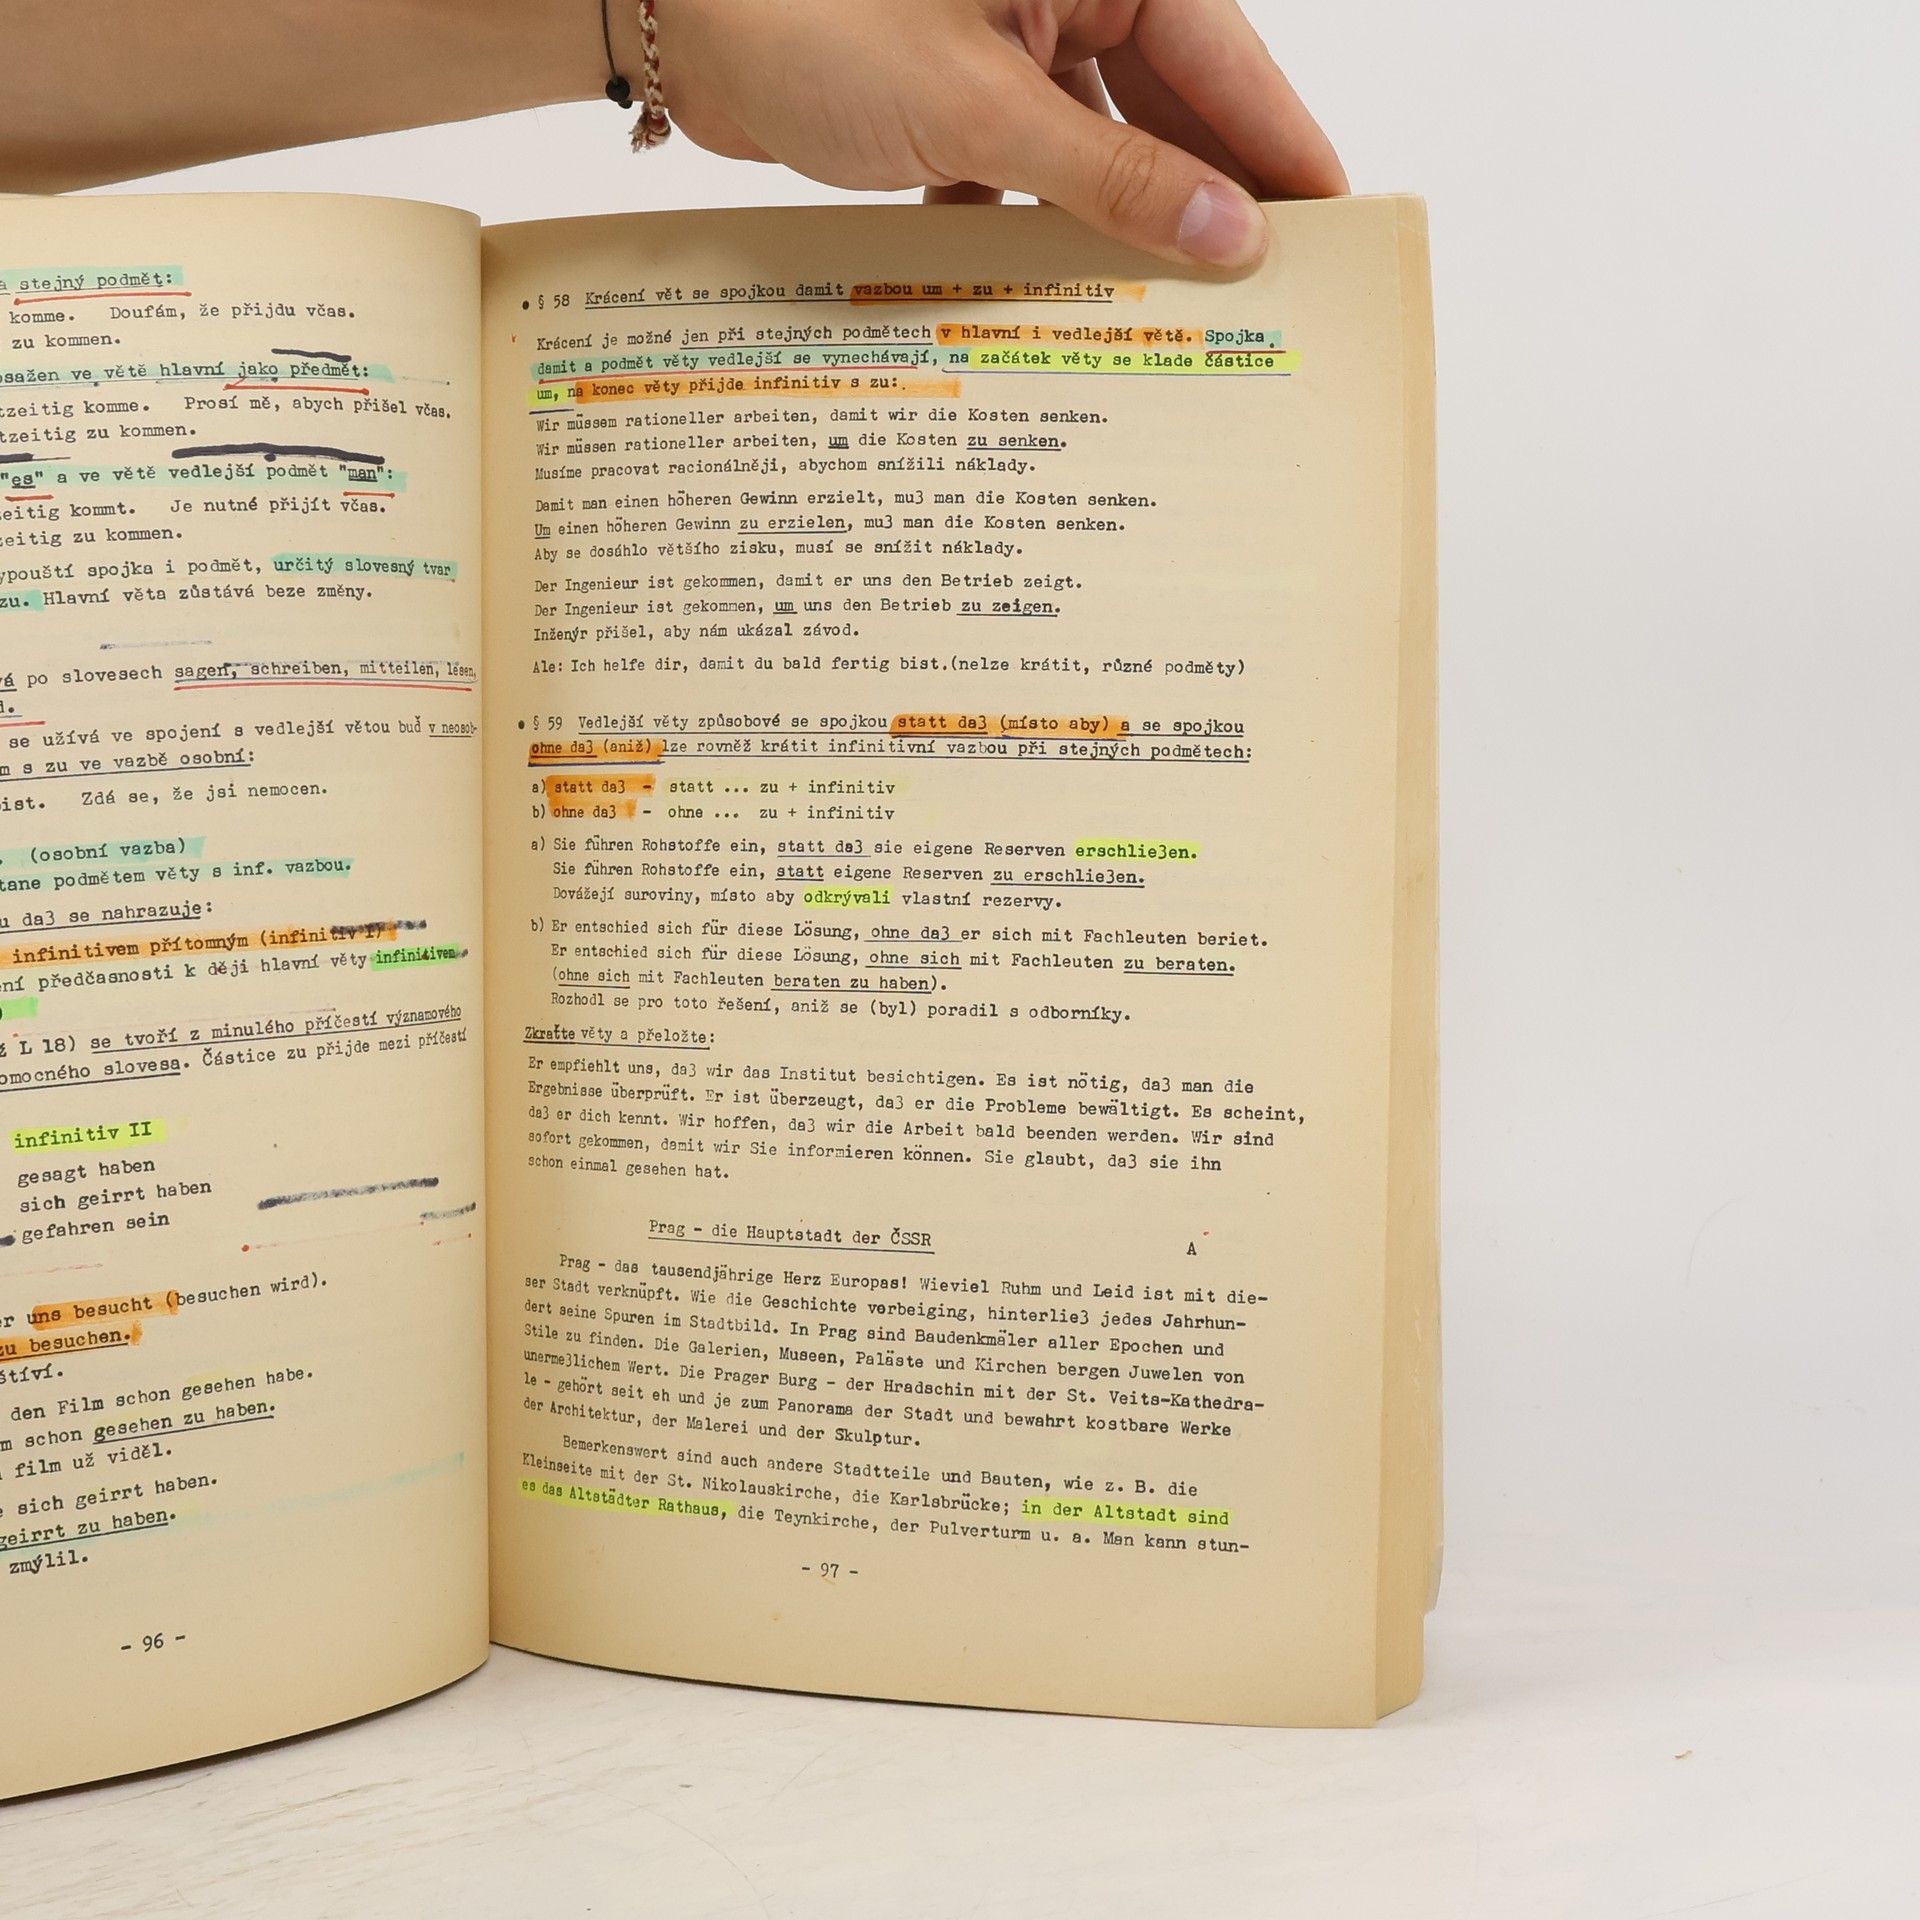 a stejný podmět:
komme. Doufám, že přijdu včas.
zu kommen.
osažen ve větě hlavní jako předmět:
tzeitig komme. Prosí mě, abych přišel včas.
tzeitig zu kommen.
"es" a ve větě vedlejší podmět "man":
zeitig kommt. Je nutné přijít včas.
zeitig zu kommen.
ypouští spojka i podmět, určitý slovesný tvar
zu. Hlavní věta zůstává beze změny.
vá po slovesech sagen, schreiben, mitteilen, lesen,
d.
se užívá ve spojení s vedlejší větou buď v neosob-
m s zu ve vazbě osobní:
bist. Zdá se, že jsi nemocen.
. (osobní vazba)
tane podmětem věty s inf. vazbou.
u da3 se nahrazuje:
infinitivem přítomným (infinitiv I)
ení předčasnosti k ději hlavní věty infinitivem
)
ž L 18) se tvoří z minulého příčestí významového
omocného slovesa. Částice zu přijde mezi příčestí
infinitiv II
gesagt haben
sich geirrt haben
gefahren sein
er uns besucht (besuchen wird).
zu besuchen.
štíví.
den Film schon gesehen habe.
m schon gesehen zu haben.
film už viděl.
e sich geirrt haben.
geirrt zu haben.
zmýlil.
- 96 -
• § 58 Krácení vět se spojkou damit vazbou um + zu + infinitiv
Krácení je možné jen při stejných podmětech v hlavní i vedlejší větě. Spojka
damit a podmět věty vedlejší se vynechávají, na začátek věty se klade částice
um, na konec věty přijde infinitiv s zu:
Wir müssem rationeller arbeiten, damit wir die Kosten senken.
Wir müssen rationeller arbeiten, um die Kosten zu senken.
Musíme pracovat racionálněji, abychom snížili náklady.
Damit man einen höheren Gewinn erzielt, mu3 man die Kosten senken.
Um einen höheren Gewinn zu erzielen, mu3 man die Kosten senken.
Aby se dosáhlo většího zisku, musí se snížit náklady.
Der Ingenieur ist gekommen, damit er uns den Betrieb zeigt.
Der Ingenieur ist gekommen, um uns den Betrieb zu zeigen.
Inženýr přišel, aby nám ukázal závod.
Ale: Ich helfe dir, damit du bald fertig bist.(nelze krátit, různé podměty)
• § 59 Vedlejší věty způsobové se spojkou statt da3 (místo aby) a se spojkou
ohne da3 (aniž) lze rovněž krátit infinitivní vazbou při stejných podmětech:
a) statt da3 - statt ... zu + infinitiv
b) ohne da3 - ohne ... zu + infinitiv
a) Sie führen Rohstoffe ein, statt da3 sie eigene Reserven erschlie3en.
Sie führen Rohstoffe ein, statt eigene Reserven zu erschlie3en.
Dovážejí suroviny, místo aby odkrývali vlastní rezervy.
b) Er entschied sich für diese Lösung, ohne da3 er sich mit Fachleuten beriet.
Er entschied sich für diese Lösung, ohne sich mit Fachleuten zu beraten.
(ohne sich mit Fachleuten beraten zu haben).
Rozhodl se pro toto řešení, aniž se (byl) poradil s odborníky.
Zkraťte věty a přeložte:
Er empfiehlt uns, da3 wir das Institut besichtigen. Es ist nötig, da3 man die
Ergebnisse überprüft. Er ist überzeugt, da3 er die Probleme bewältigt. Es scheint,
da3 er dich kennt. Wir hoffen, da3 wir die Arbeit bald beenden werden. Wir sind
sofort gekommen, damit wir Sie informieren können. Sie glaubt, da3 sie ihn
schon einmal gesehen hat.
Prag - die Hauptstadt der ČSSR A
Prag - das tausendjährige Herz Europas! Wieviel Ruhm und Leid ist mit die-
ser Stadt verknüpft. Wie die Geschichte vorbeiging, hinterlie3 jedes Jahrhun-
dert seine Spuren im Stadtbild. In Prag sind Baudenkmäler aller Epochen und
Stile zu finden. Die Galerien, Museen, Paläste und Kirchen bergen Juwelen von
unerme3lichem Wert. Die Prager Burg - der Hradschin mit der St. Veits-Kathedra-
le - gehört seit eh und je zum Panorama der Stadt und bewahrt kostbare Werke
der Architektur, der Malerei und der Skulptur.
Bemerkenswert sind auch andere Stadtteile und Bauten, wie z. B. die
Kleinseite mit der St. Nikolauskirche, die Karlsbrücke; in der Altstadt sind
es das Altstädter Rathaus, die Teynkirche, der Pulverturm u. a. Man kann stun-
- 97 -